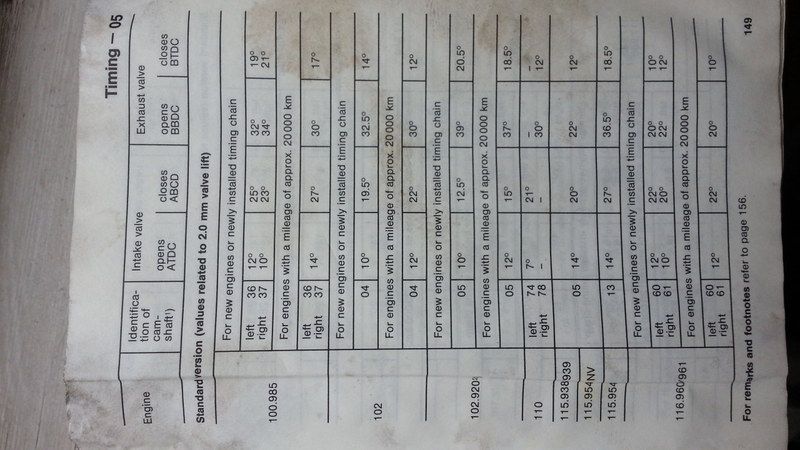 Timing – 05
Engine Identifica- Intake valve Exhaust valve
tion of opens closes opens closes
cam- ATDC ABCD BBDC BTDC
shaft¹)
Standard version (values related to 2.0 mm valve lift)
For new engines or newly installed timing chain
left 36 12° 25° 32° 19°
right 37 10° 23° 34° 21°
100.985
For engines with a mileage of approx. 20000 km
left 36
right 37 14° 27° 30° 17°
For new engines or newly installed timing chain
04 10° 19.5° 32.5° 14°
102
For engines with a mileage of approx. 20000 km
04 12° 22° 30° 12°
For new engines or newly installed timing chain
05 10° 12.5° 39° 20.5°
102.920
For engines with a mileage of approx. 20000 km
05 12° 15° 37° 18.5°
110 left 74 7° 21° – –
right 78 – – 30° 12°
115.938 939
05 14° 20° 22° 12°
115.954NV
115.954 13 14° 27° 36.5° 18.5°
For new engines or newly installed timing chain
left 60 12° 22° 20° 10°
right 61 10° 20° 22° 12°
116.960 961
For engines with a mileage of approx. 20000 km
left 60
right 61 12° 22° 20° 10°
For remarks and footnotes refer to page 156.
149